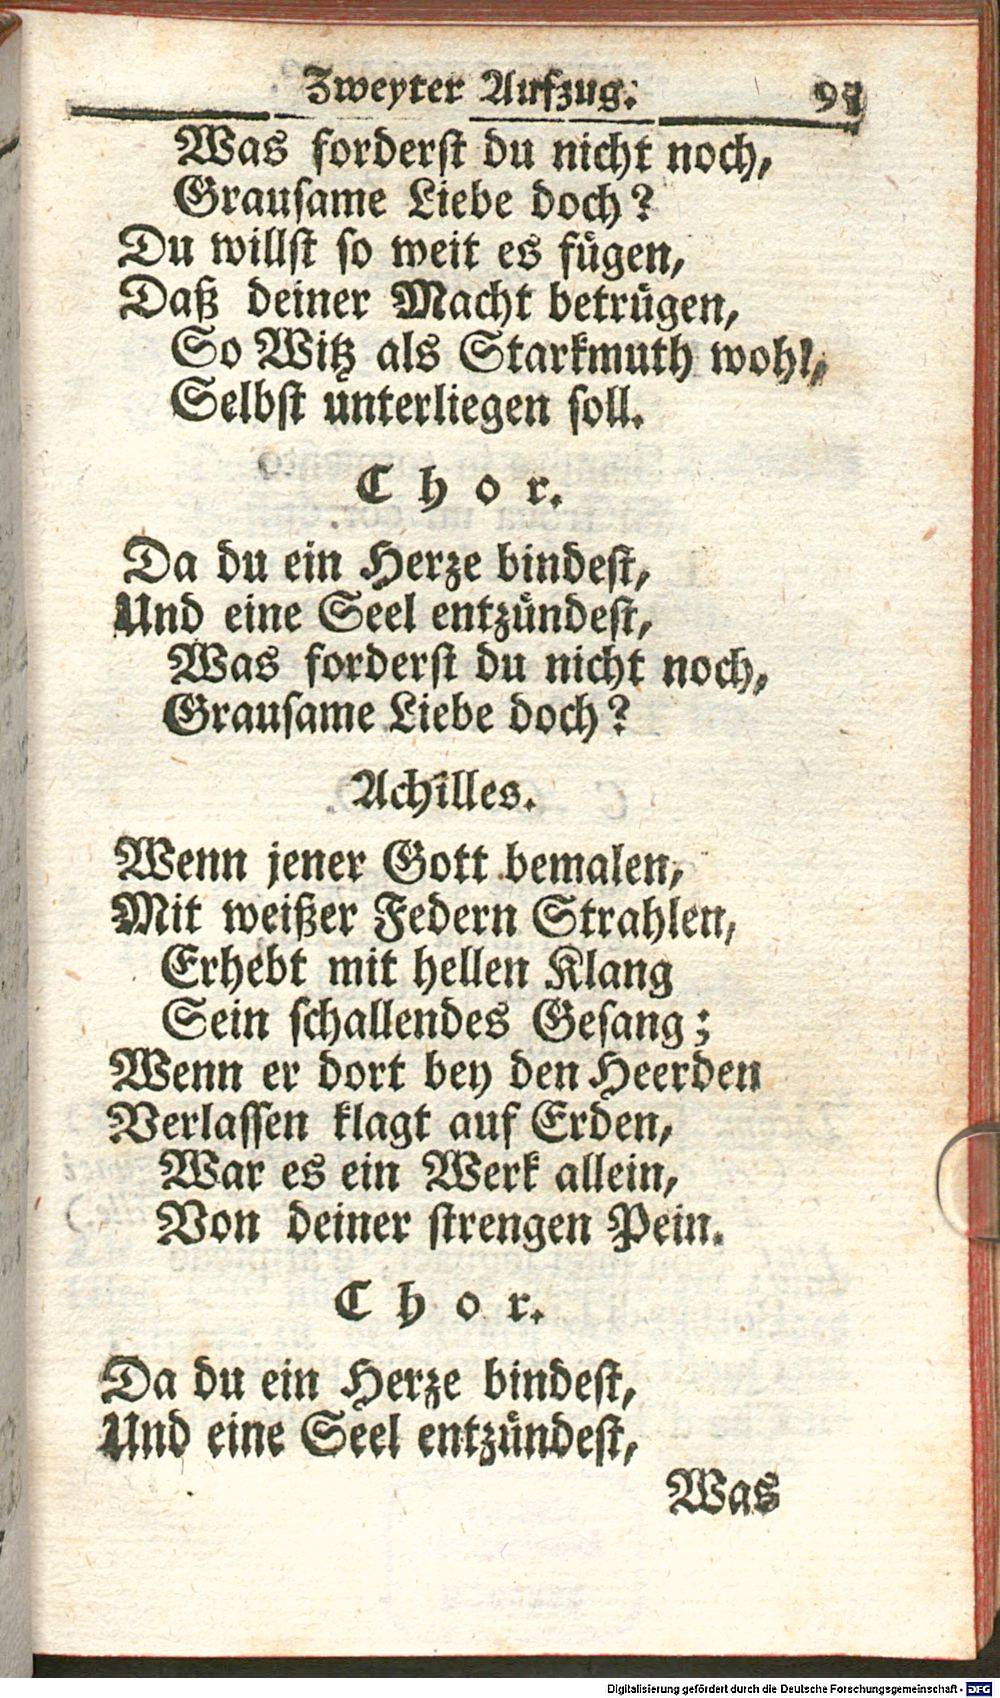 Zweyter Aufzug. 91
Was forderst du nicht noch,
Grausame Liebe doch?
Du willst so weit es fügen,
Daß deiner Macht betrügen,
So Witz als Starkmuth wohl,
Selbst unterliegen soll.
Chor.
Da du ein Herze bindest,
Und eine Seel entzündest,
Was forderst du nicht noch,
Grausame Liebe doch?
Achilles.
Wenn jener Gott bemalen,
Mit weißer Federn Strahlen,
Erhebt mit hellen Klang
Sein schallendes Gesang;
Wenn er dort bey den Heerden
Verlassen klagt auf Erden,
War es ein Werk allein,
Von deiner strengen Pein.
Chor.
Da du ein Herze bindest,
Und eine Seel entzündest,
Was
Digitalisierung gefördert durch die Deutsche Forschungsgemeinschaft - DFG